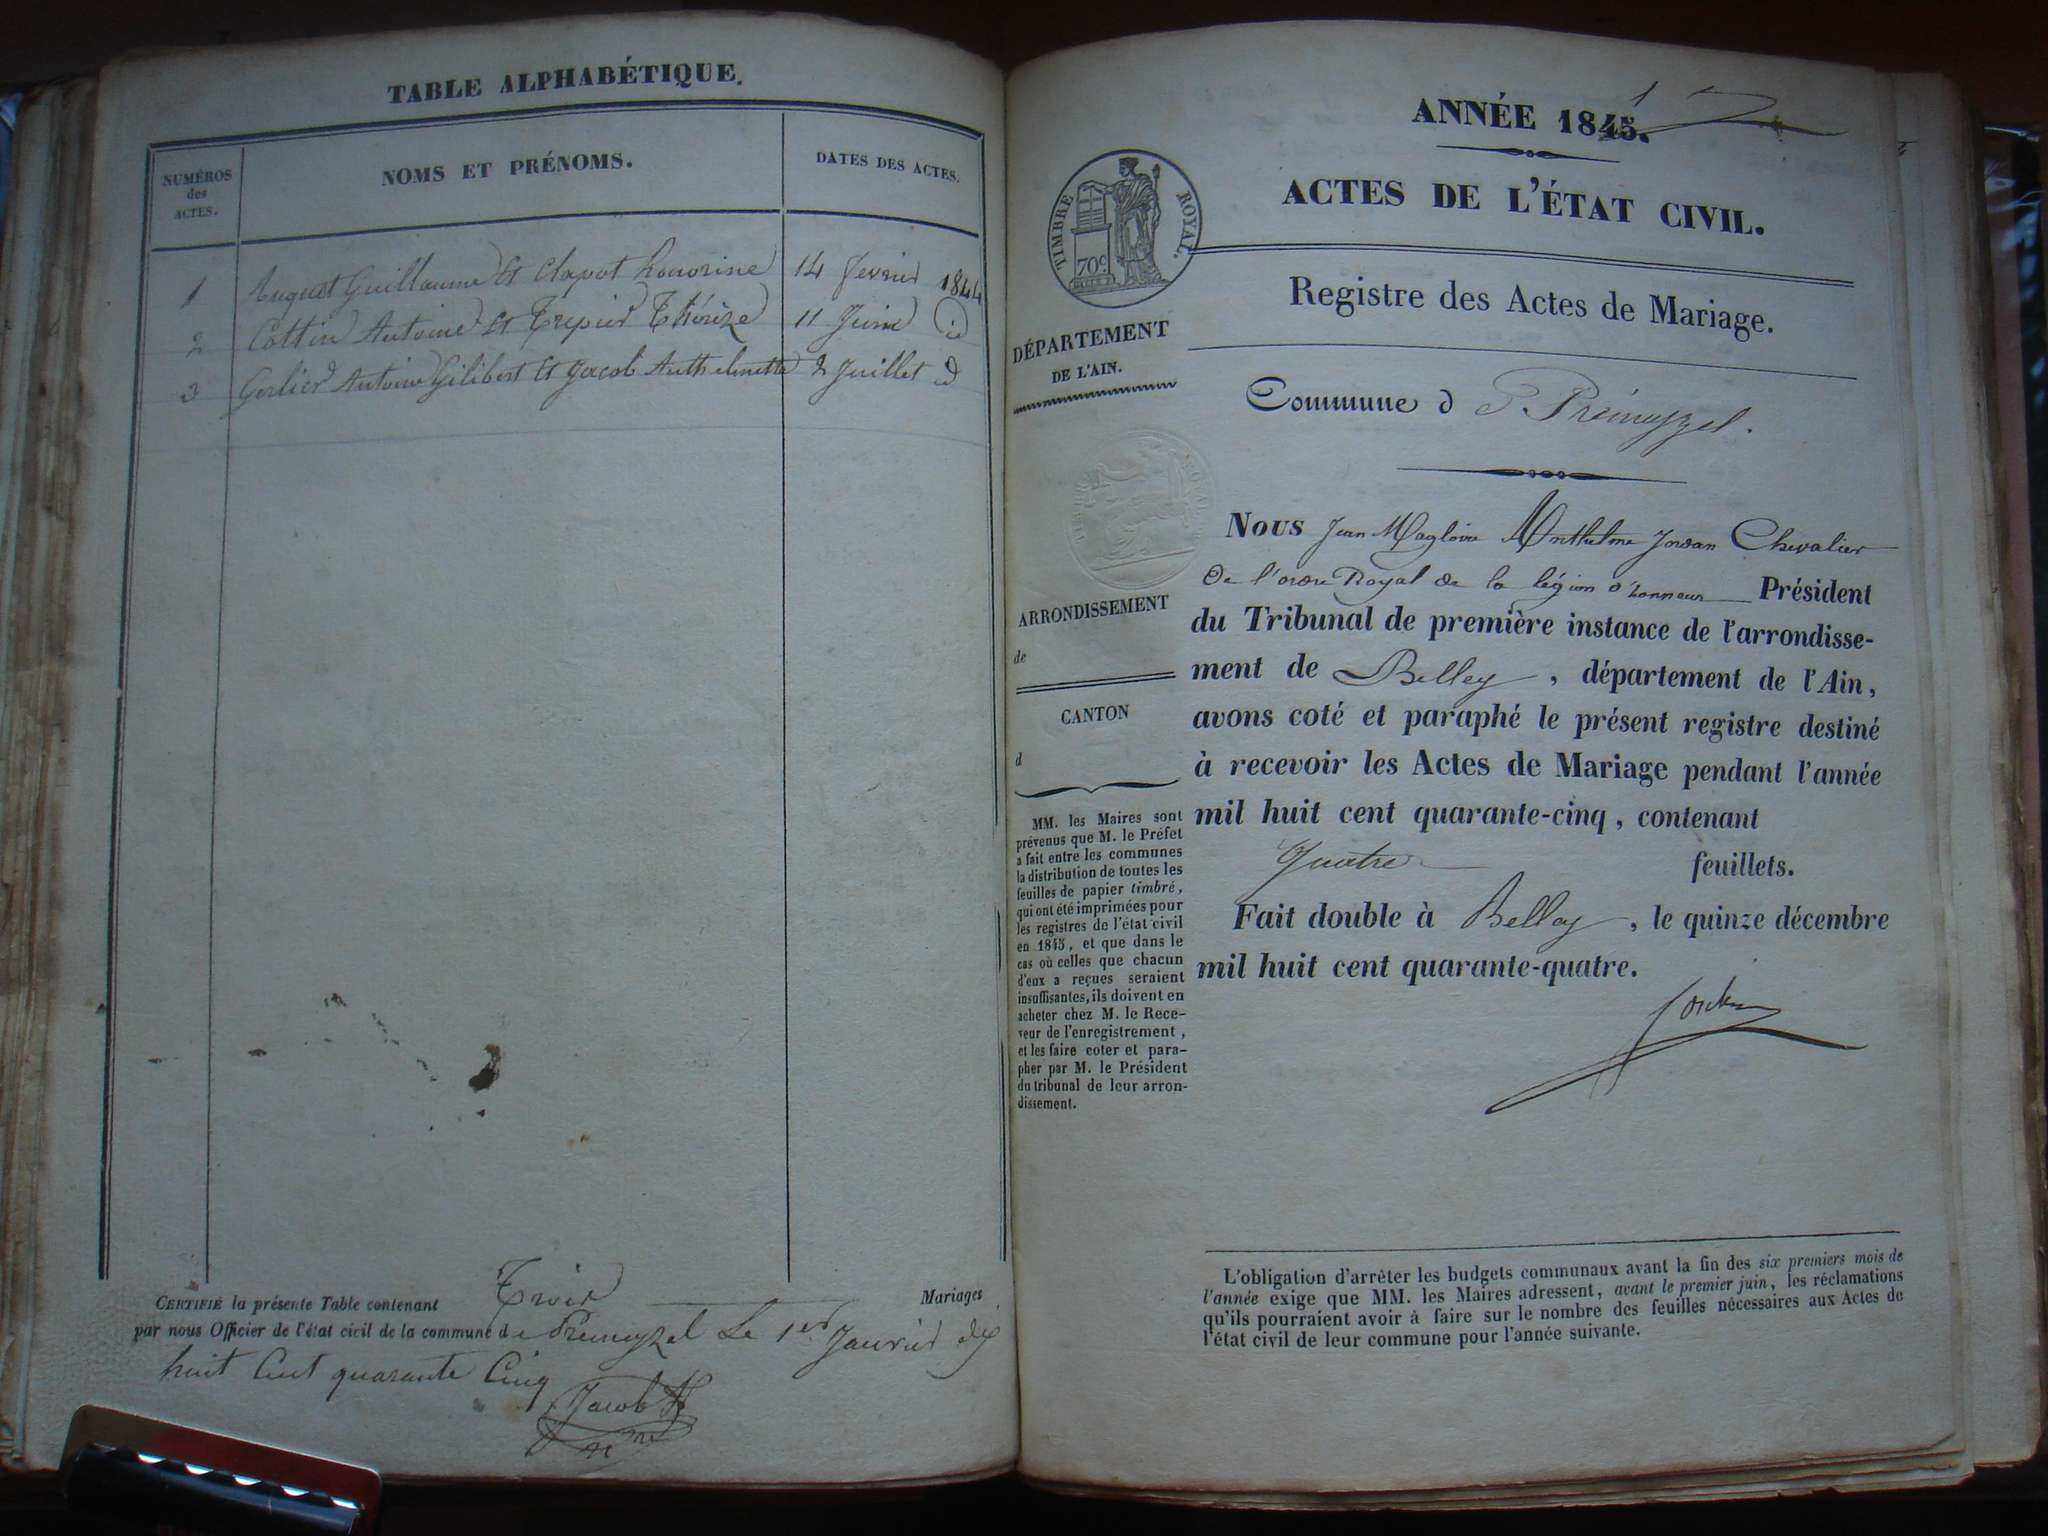 TABLE ALPHABÉTIQUE.
NUMÉROS
des
ACTES.
NOMS ET PRÉNOMS.
DATES DES ACTES.
1 August Guillaume Et Clapot honorine 14 fevrier 1844
2 Cottin Antoine Et Trepier Thérèze 11 Juin id
3 Gerlier Antoine Gilibert Et Jacob Anthelmette 2 Juillet id
CERTIFIÉ la présente Table contenant Trois Mariages
par nous Officier de l'état civil de la commune de Premeyzel Le 1er Janvier
huit Cent quarante Cinq
Jacob
1
ANNÉE 1845.
ACTES DE L'ÉTAT CIVIL.
TIMBRE ROYAL.
70c.
Registre des Actes de Mariage.
DÉPARTEMENT
DE L'AIN.
Commune d Prémeyzel.
ARRONDISSEMENT
de
CANTON
d
MM. les Maires sont
prévenus que M. le Préfet
a fait entre les communes
la distribution de toutes les
feuilles de papier timbré,
qui ont été imprimées pour
les registres de l'état civil
en 1845, et que dans le
cas où celles que chacun
d'eux a reçues seraient
insuffisantes, ils doivent en
acheter chez M. le Rece-
veur de l'enregistrement,
et les faire coter et para-
pher par M. le Président
du tribunal de leur arron-
dissement.
NOUS Jean Magloire Anthelme Jordan Chevalier
De l'ordre Royal de la légion d'honneur Président
du Tribunal de première instance de l'arrondisse-
ment de Belley, département de l'Ain,
avons coté et paraphé le présent registre destiné
à recevoir les Actes de Mariage pendant l'année
mil huit cent quarante-cinq, contenant
Quatre feuillets.
Fait double à Belley, le quinze décembre
mil huit cent quarante-quatre.
Jordan
L'obligation d'arrêter les budgets communaux avant la fin des six premiers mois de
l'année exige que MM. les Maires adressent, avant le premier juin, les réclamations
qu'ils pourraient avoir à faire sur le nombre des feuilles nécessaires aux Actes de
l'état civil de leur commune pour l'année suivante.